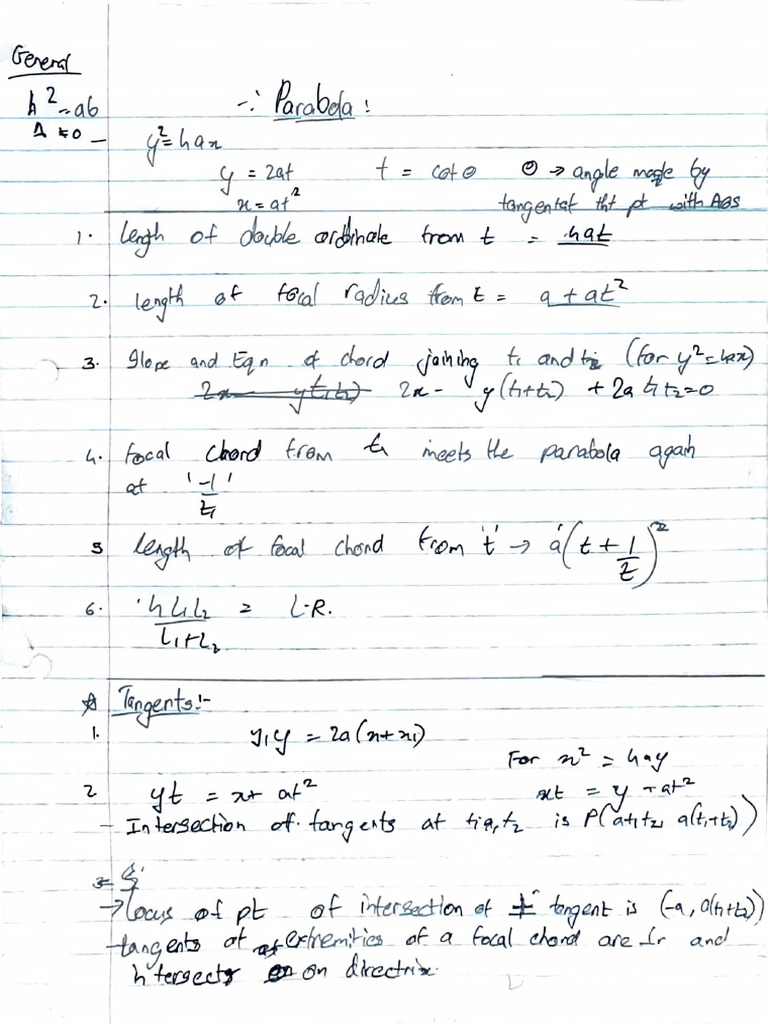 General
h² = ab
Δ ≠ 0
-: Parabola :
y² = 4ax
y = 2at t = cotθ θ → angle made by
x = at² tangent at tht pt with Axis
1. length of double ordinate from t = 4at
2. length of focal radius from t = a + at²
3. Slope and Eqn of chord joining t₁ and t₂ (for y² = 4ax)
2x - y(t₁+t₂) + 2a t₁t₂ = 0
4. focal chord from t₁ meets the parabola again
at '-1/t₁'
5 length of focal chord from 't' → a(t + 1/t)²
6. 4L₁L₂/L₁+L₂ = L.R.
☆ Tangents :-
1. y₁y = 2a(x+x₁)
For x² = 4ay
2 yt = x + at² xt = y + at²
- Intersection of tangents at t₁ & t₂ is P(at₁t₂, a(t₁+t₂))
→ locus of pt of intersection of tangent is (-a, a(t₁+t₂))
- tangents at extremities of a focal chord are ⊥r and
intersects on directrix.